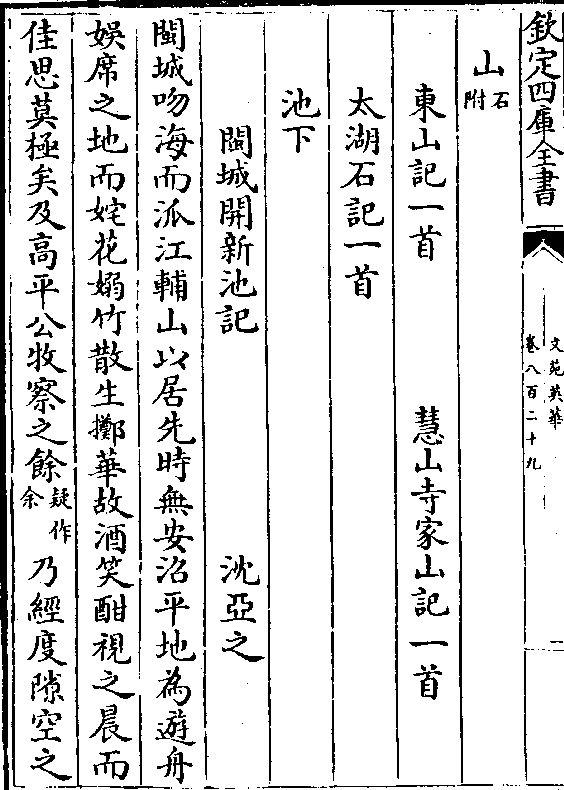 欽定四庫全書
文苑英華
卷八百二十九
一
山附石
東山記一首 慧山寺家山記一首
太湖石記一首
池下
閩城開新池記 沈亞之
閩城吻海而派江輔山以居先時無安沼平地為遊舟
娛席之地而姹花嫋竹散生擲華故酒笑酣視之晨而
佳思莫極矣及高平公牧察之餘疑作余乃經度隙空之